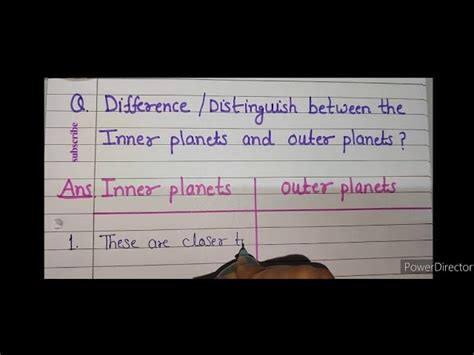 Q. Difference / Distinguish between the
Inner planets and outer planets?
subscribe
Ans Inner planets outer planets
1. These are closer t
PowerDirector